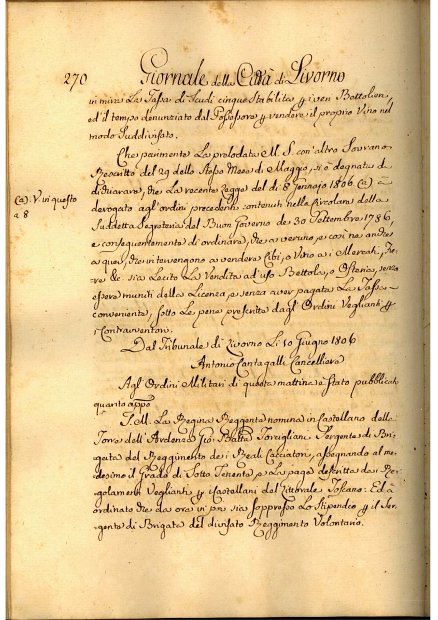 270 Giornale della Città di Livorno
in mira La Tassa di Scudi cinque Stabilita p i ven Bettolieri,
ed il tempo denunziato dal Possessore p vendere il proprio Vino nel
modo Suddivisato.
Che parimente La prelodata M. S. con altro Sovrano
Rescritto del 29 dello Stesso Mese di Maggio, si è degnata di
dichiarare, che La recente Legge del dì 8 Gennajo 1806 (a) à
(a). V. in questo
a 8
derogato agl'ordini precedenti contenuti nella Circolare della
Suddetta Segreteria del Buon Governo de 30 Settembre 1786
e conseguentemente di ordinare, che a veruno, e così ne anche
a quei, che intervengono a vendere Cibi, o Vino a i Mercati, Fie-
re &c. sia Lecito La Vendita ad uso Bettola, o Osteria, senza
essere muniti della Licenza, e senza aver pagata La Tassa
conveniente, sotto Le pene prescritte dagl'Ordini Veglianti p
i Contravventori.
Dal Tribunale di Livorno Li 10 Giugno 1806
Antonio Cantagalli Cancelliere
Agl'Ordini Militari di questa mattina è stato pubblicato
quanto app.o
S. M. La Regina Reggente nomina in Castellano della
Torre dell'Ardenza Gio Batta Torcigliani Sergente di Bri-
gata del Reggimento dei Reali Cacciatori, assegnando al me-
desimo il Grado di Sotto Tenente, e La paga descritta da i Re-
golamenti Veglianti p i Castellani del Littorale Toscano: Ed à
ordinato che da ora in poi sia soppresso Lo Stipendio p il Ser-
gente di Brigata del divisato Reggimento Volontario.